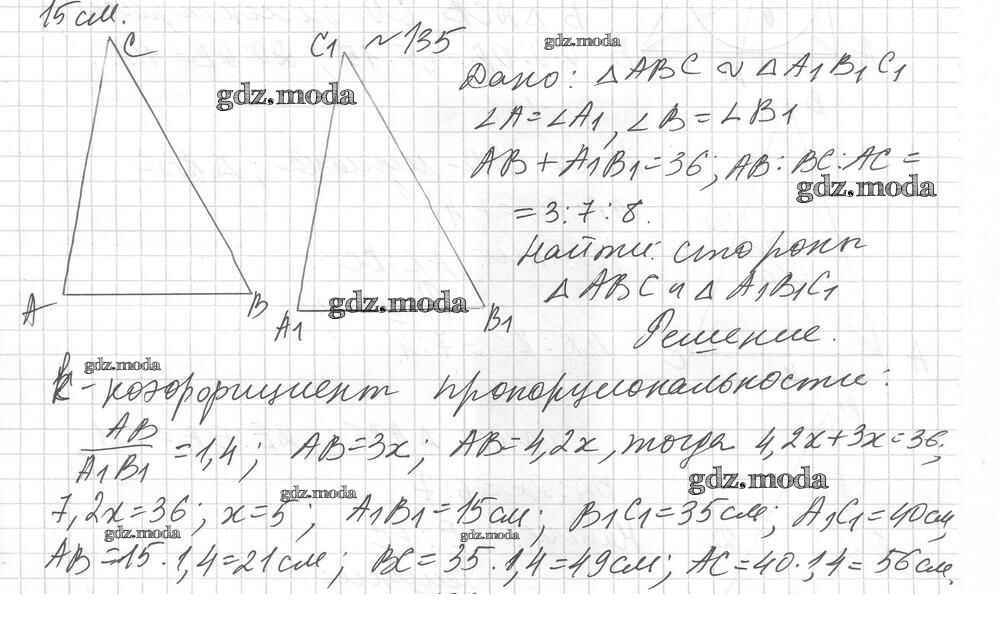 15 см.
C
C1 ~135
gdz.moda
Дано: △ ABC ∾ △ A1B1C1
gdz.moda
∠A=∠A1, ∠B=∠B1
AB+A1B1=36; AB:BC:AC=
gdz.moda
=3:7:8.
Найти: стороны
△ ABC и △ A1B1C1
A B
gdz.moda
A1 B1
Решение.
gdz.moda
k-коэффициент пропорциональности:
AB/A1B1=1,4; AB=3x; AB=4,2x, тогда 4,2x+3x=36;
gdz.moda
gdz.moda
7,2x=36; x=5; A1B1=15см; B1C1=35см; A1C1=40см,
gdz.moda
gdz.moda
AB=15·1,4=21см; BC=35·1,4=49см; AC=40·1,4=56см.